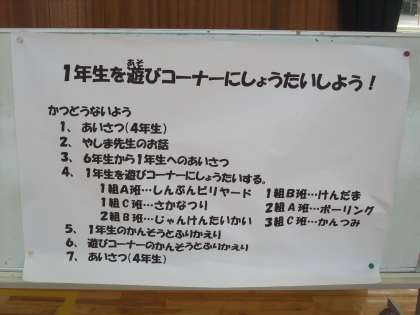 1年生を遊びコーナーにしょうたいしよう！
あそ
かつどうないよう
1、あいさつ(4年生)
2、やしま先生のお話
3、6年生から1年生へのあいさつ
4、1年生を遊びコーナーにしょうたいする。
1組A班…しんぶんビリヤード 1組B班…けんだま
1組C班…さかなつり 2組A班…ボーリング
2組B班…じゃんけんたいかい 3組C班…かんつみ
5、1年生のかんそうとふりかえり
6、遊びコーナーのかんそうとふりかえり
7、あいさつ(4年生)